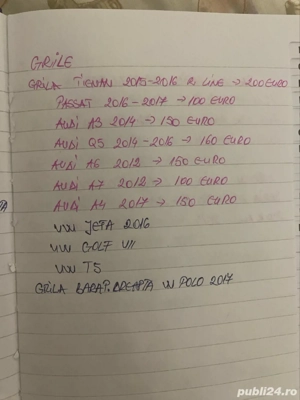 GRILE
GRILA TIGUAN 2015-2016 R LINE → 200 EURO
PASSAT 2016-2017 → 100 EURO
AUDI A3 2014 → 150 EURO
AUDI Q5 2014-2016 → 160 EURO
AUDI A6 2012 → 150 EURO
AUDI A7 2012 → 100 EURO
AUDI A4 2017 → 150 EURO
VW JETA 2016
VW GOLF VII
VW T5
GRILA BARA P. DREAPTA VW POLO 2017
publi24.ro